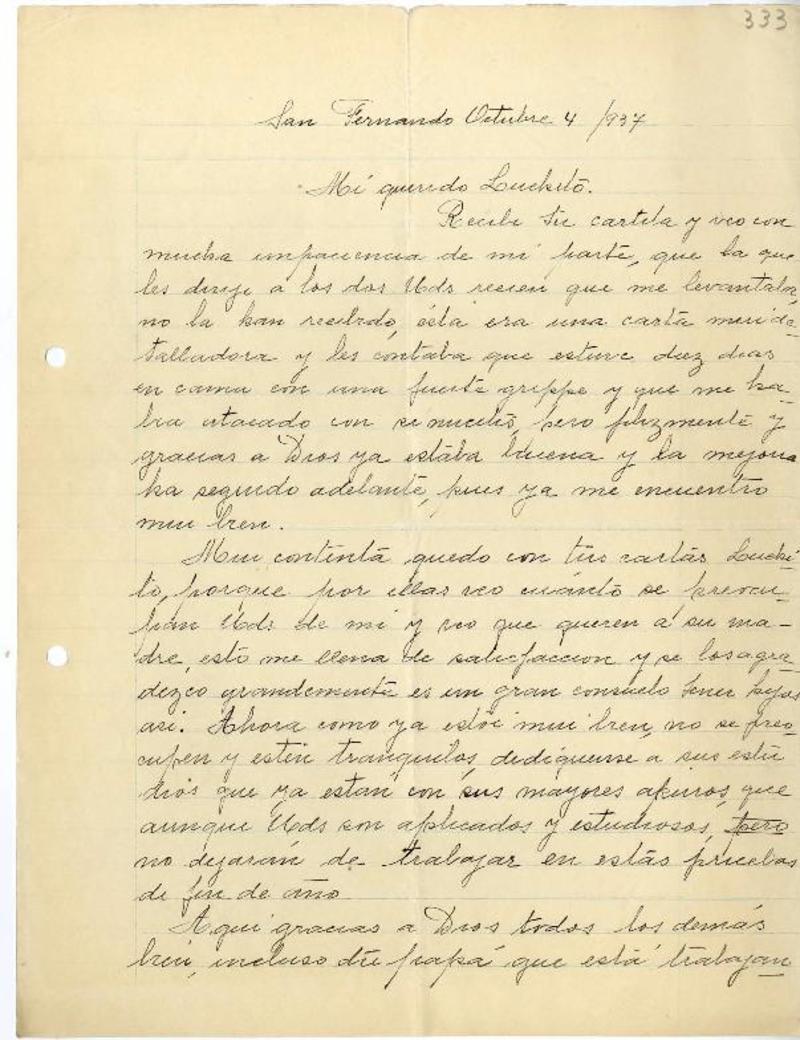 333
San Fernando Octubre 4 /937
Mi querido Luckito.
Recibi tu cartita y veo con
mucha impaciencia de mi parte, que la que
les dirijí a los dos Uds recien que me levantaba,
no la han recibido, ésta era una carta mui de-
talladora y les contaba que estuve diez dias
en cama con una fuerte grippe y que me ha-
bia atacado con si mucho, pero felizmente y
gracias a Dios ya estaba buena y la mejoria
ha seguido adelante, pues ya me encuentro
mui bien.
Mui contenta quedo con tus cartas Lucki-
to, porque por ellas veo cuánto se preocu-
pan Uds de mi y veo que quieren a su ma-
dre, esto me llena de satisfaccion y se los agra-
dezco grandemente es un gran consuelo tener hijos
asi. Ahora como ya estoi mui bien, no se preo-
cupen y estén tranquilos, dediquense a sus estu
dios que ya estan con sus mayores apuros, que
aunque Uds son aplicados y estudiosos, pero
no dejarán de trabajar en estas pruebas
de fin de año
Aqui gracias a Dios todos los demás
bien, incluso tu papá que está trabajan-